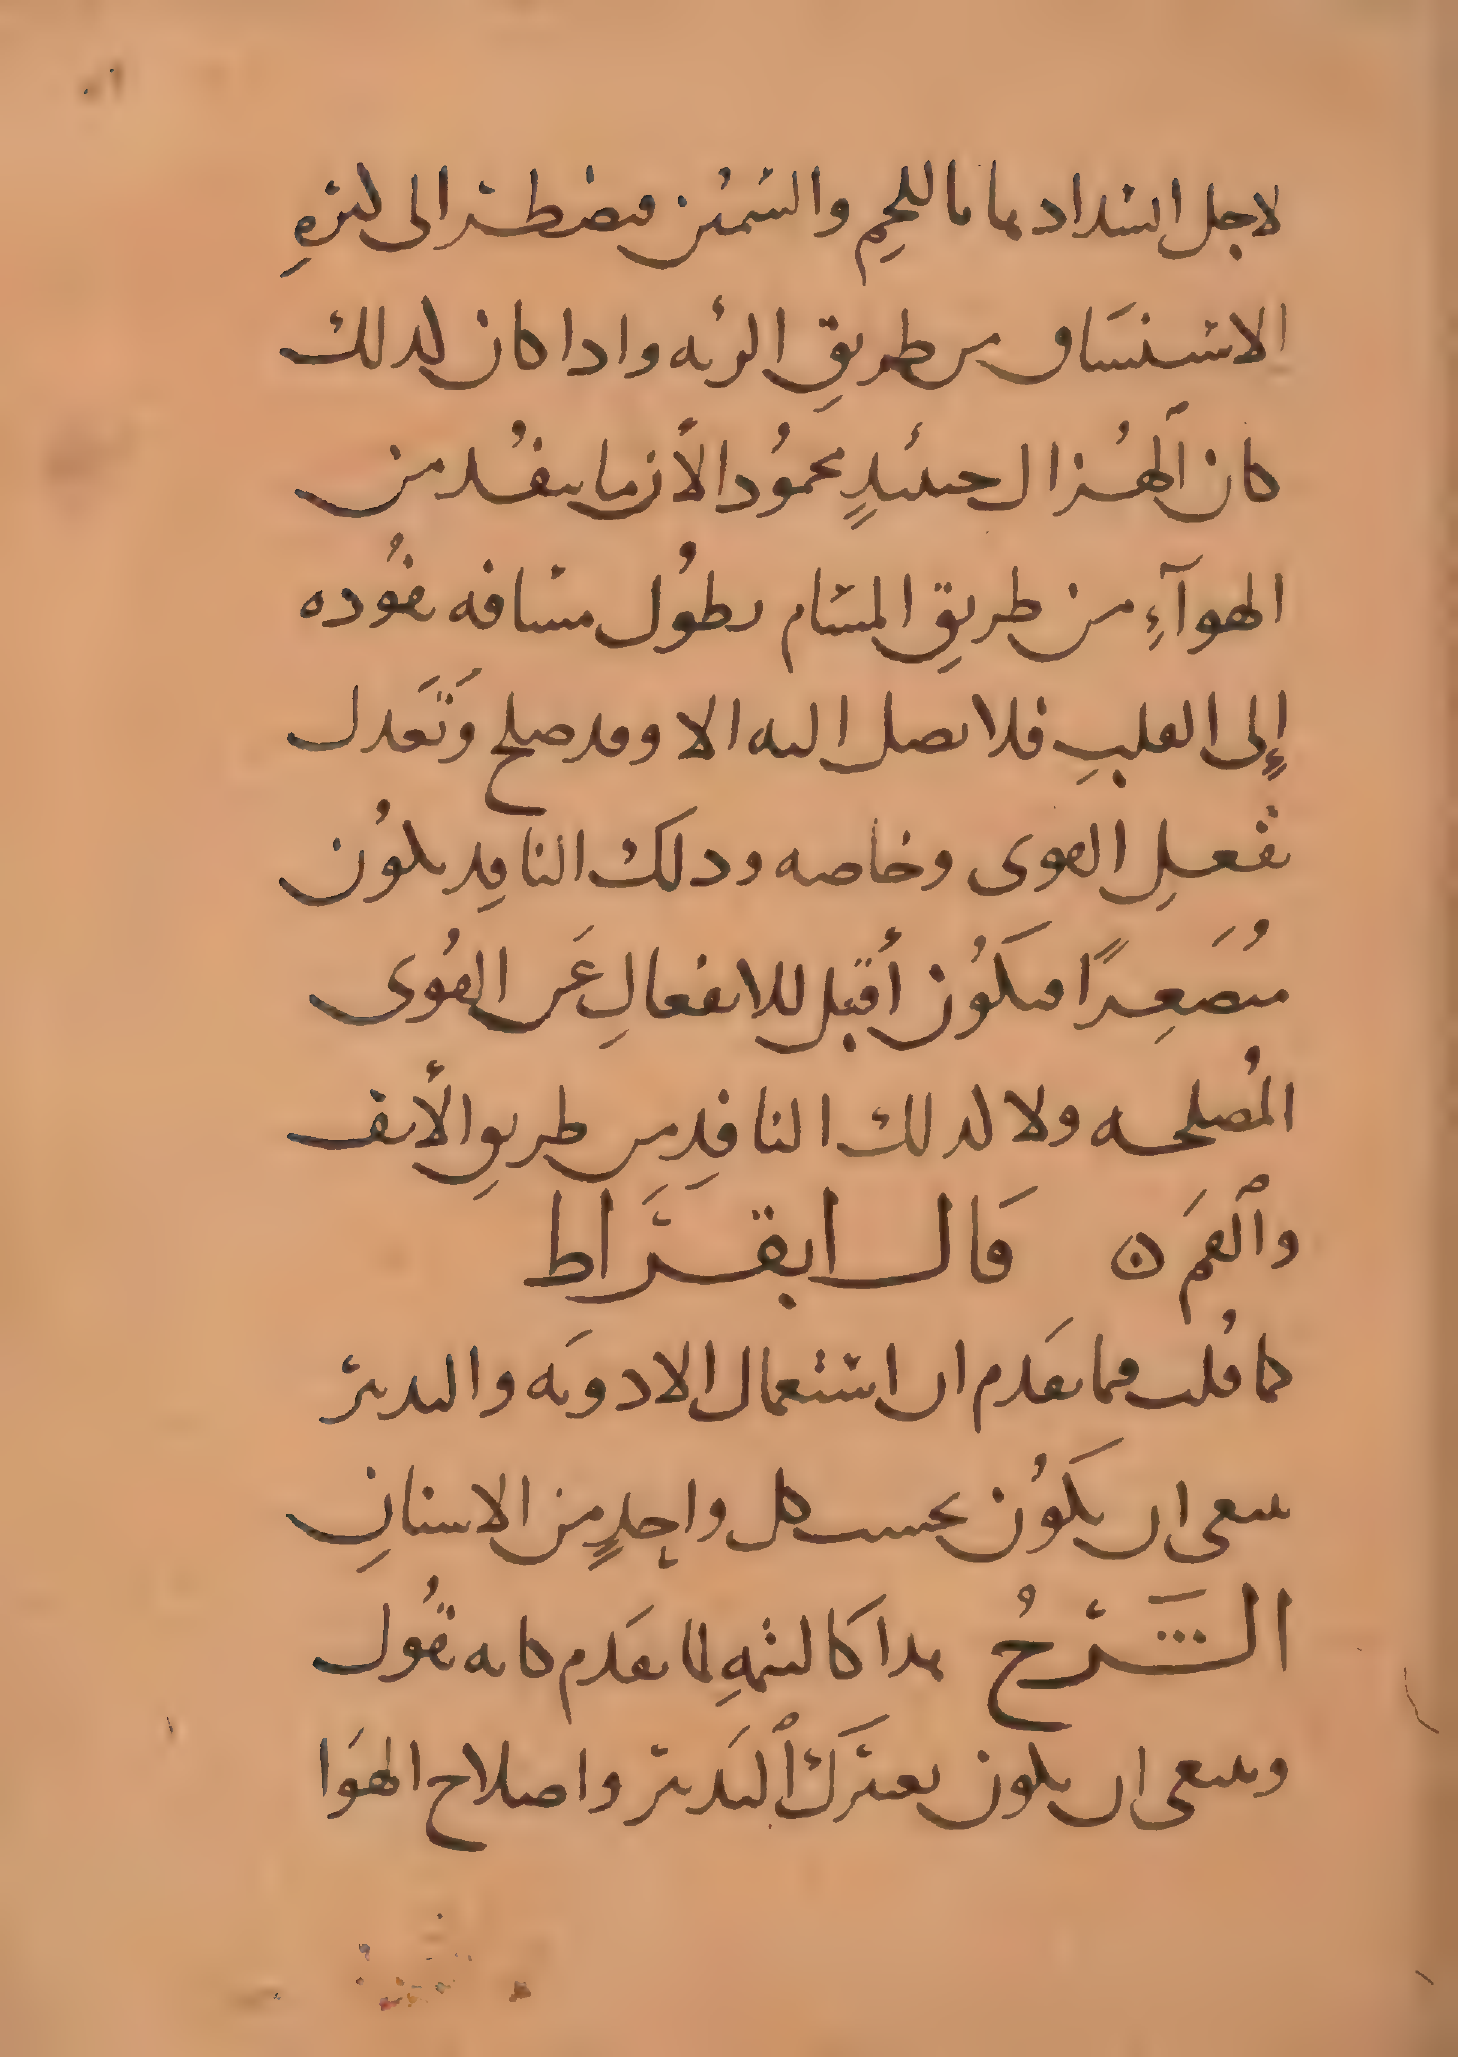 لاجل انسدادها باللحم والسمين فيضطر الى كثرة
الاستنشاق من طريق الرئه واذا كان كذلك
كان الهزال حينئذٍ محمودا لأن ما ينفُذ من
الهوآءِ من طريقِ المسام يطُول مسافه نفُوذه
إلى القلبِ فلا يصل اليه الا وقد صلح وَتَعَدل
بفعلِ القوى وخاصه وذلك النافِذ يكُون
مُتصَعِدًا فيكَوُن أقبل للانفعالِ عَن القُوى
المُصلحه ولا كذلك النافِذِ من طريقِ الأنف
والفَم ن قَال ابقرَاط
كما قُلت فيما تقَدم ان استعمال الادويَه والتدبير
ينبغى ان يكوُن بحسب كل واحِدٍ من الاسنانِ
الشَرْحُ هذا كَالتتمهِ لما تقَدم كانه يقُول
وينبغى ان يكون بعترك التَدبير واصلاح الهوَا